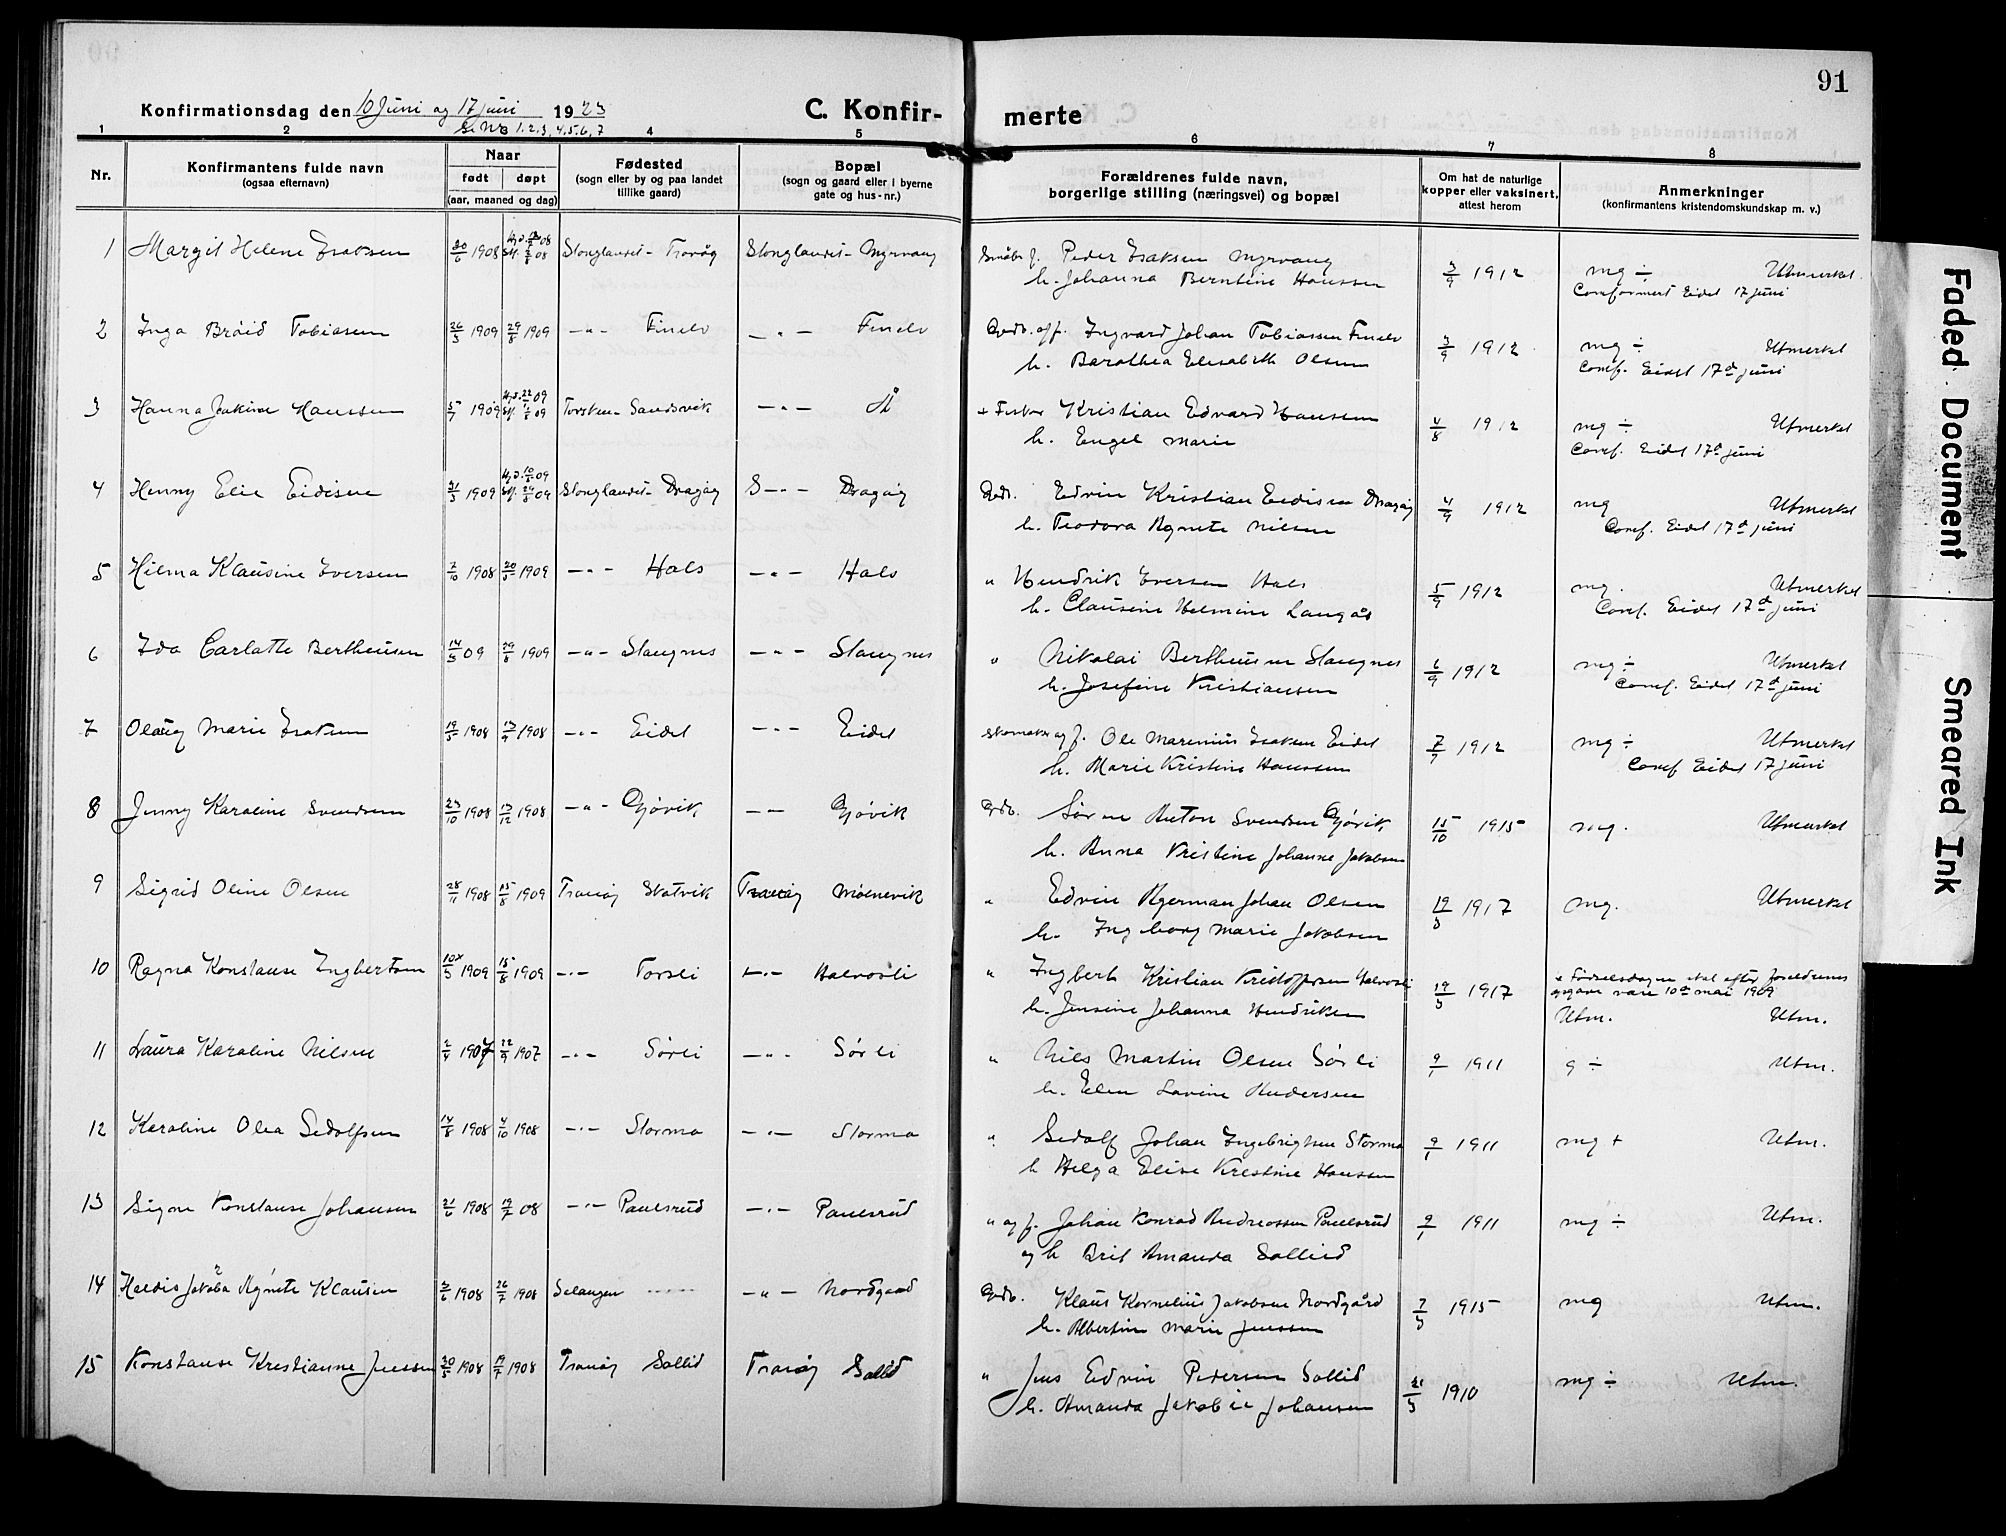 91
Konfirmationsdag den 10 Juni og 17 juni 1923
C. Konfirmerte
Nr. 1.2.3.4.5.6,7
1 2 3 4 5 6 7 8
Nr.
Konfirmantens fulde navn
(ogsaa efternavn)
Naar
født døpt
(aar, maaned og dag)
Fødested
(sogn eller by og paa landet
tillike gaard)
Bopæl
(sogn og gaard eller i byerne
gate og hus-nr.)
Forældrenes fulde navn,
borgerlige stilling (næringsvei) og bopæl
Om hat de naturlige
kopper eller vaksinert,
attest herom
Anmerkninger
(konfirmantens kristendomskundskap m. v.)
1 Margit Helene Isaksen 1908 Stonglandet - Stonglandet - Myrvang Peder Isaksen Myrvang 3/9 1912 mg ÷ Utmerket
h. Johanna Berntine Hanssen Confirmert Eidet 17 juni
2 Inga Tobiassen 26/5 1909 29/8 1909 -"- Finelv -"- Finelv Ingvard Johan Tobiassen Finelv 3/9 1912 mg ÷ Utmerket
h. Barothea Elisabeth Olsen Conf. Eidet 17de juni
3 Hanna Jakine Hanssen 5/7 1909 Torsken - Sandsvik -"- Å + Fisker Kristian Edvard Hanssen 4/8 1912 mg ÷ Utmerket
h. Engel Marie Conf. Eidet 17de juni
4 Henny Elie Eidisen 31/3 1909 Stonglandet - Dragøy S -"- Dragøy Gbr. Edvin Kristian Eidissen Dragøy 4/9 1912 mg Utmerket
h. Teodora Agnete Nilsen Conf. Eidet 17de juni
5 Hilma Klausine Iversen 7/10 1908 1909 -"- Hals -"- Hals " Hendrik Iversen Hals 5/9 1912 mg. Utmerket
h. Clausine Helmine Langås Conf. Eidet 17de juni
6 Ida Carlatte Bertheusen 14/5 09 29/8 1909 -"- Slaugnes -"- Slaugnes " Nikolai Bertheusen Slaugnes 6/9 1912 mg ÷ Utmerket
h. Josefine Kristiansen Conf. Eidet 17de juni
7 Olaug Marie Isaksen 19/5 1908 13/9 1908 -"- Eidet -"- Eidet skomaker og f. Ole Marenius Isaksen Eidet 7/9 1912 mg ÷ Utmerket
h. Marie Kristine Hanssen Conf Eidet 17 juni
8 Jenny Karoline Svendsen 23/10 1908 13/12 1908 -"- Gjøvik -"- Gjøvik Gbr. Søren Anton Svendsen Gjøvik 15/10 1915 mg. Utmerket
h. Anna Kristine Johanne Jakobsen
9 Sigrid Oline Olsen 28/11 1908 15/8 1909 Tranøy Skatvik Tranøy Molnevik " Edvin Agerman Johan Olsen 19/3 1917 mg. Utmerket
h. Ingborg Marie Jakobsen
10 Ragna Konstanse Ingbertsen 10x/5 1909 15/8 1909 -"- Torsli -"- Halvorsli " Ingbert Kristian Kristoffersen Halvorsli 19/3 1917 x Fødselsdagen skal efter foreldrenes
h. Jensine Johanna Hendriksen opgave være 10de mai 1909
Utm. Utm.
11 Laura Karoline Nilsen 1907 22/9 1907 -"- Sørli -"- Sørli " Nils Martin Olsen Sørli 9/1 1911 g ÷ Utm.
h. Elen Lovine Andersen
12 Karoline Olea Sedolfsen 14/8 1908 4/10 1908 -"- Stormo -"- Stormo " Sedolf Johan Ingebrigtsen Stormo 9/1 1911 mg + Utm.
h Helga Elise Kristine Hansen
13 Signe Konstanse Johansen 21/6 1908 19/7 08 -"- Paulsrud -"- Paulsrud " og f. Johan Konrad Andreassen Paulsrud 9/1 1911 mg ÷ Utm.
og h Brit Amanda Sollied
14 Haldis Jakoba Agnete Klausen 3/6 1908 26/7 1908 Salangen -"- Nordgaard Gbr. Klaus Kornelius Jakobsen Nordgård 7/3 1915 mg Utm.
h. Albertine Marie Jenssen
15 Konstanse Krestianne Jenssen 20/5 1908 19/7 1908 Tranøy Sollid Tranøy Sollid " Jens Edvin Pedersen Sollid 1910 mg ÷ Utm.
h. Amanda Jakobie Johansen
Faded Document
Smeared Ink